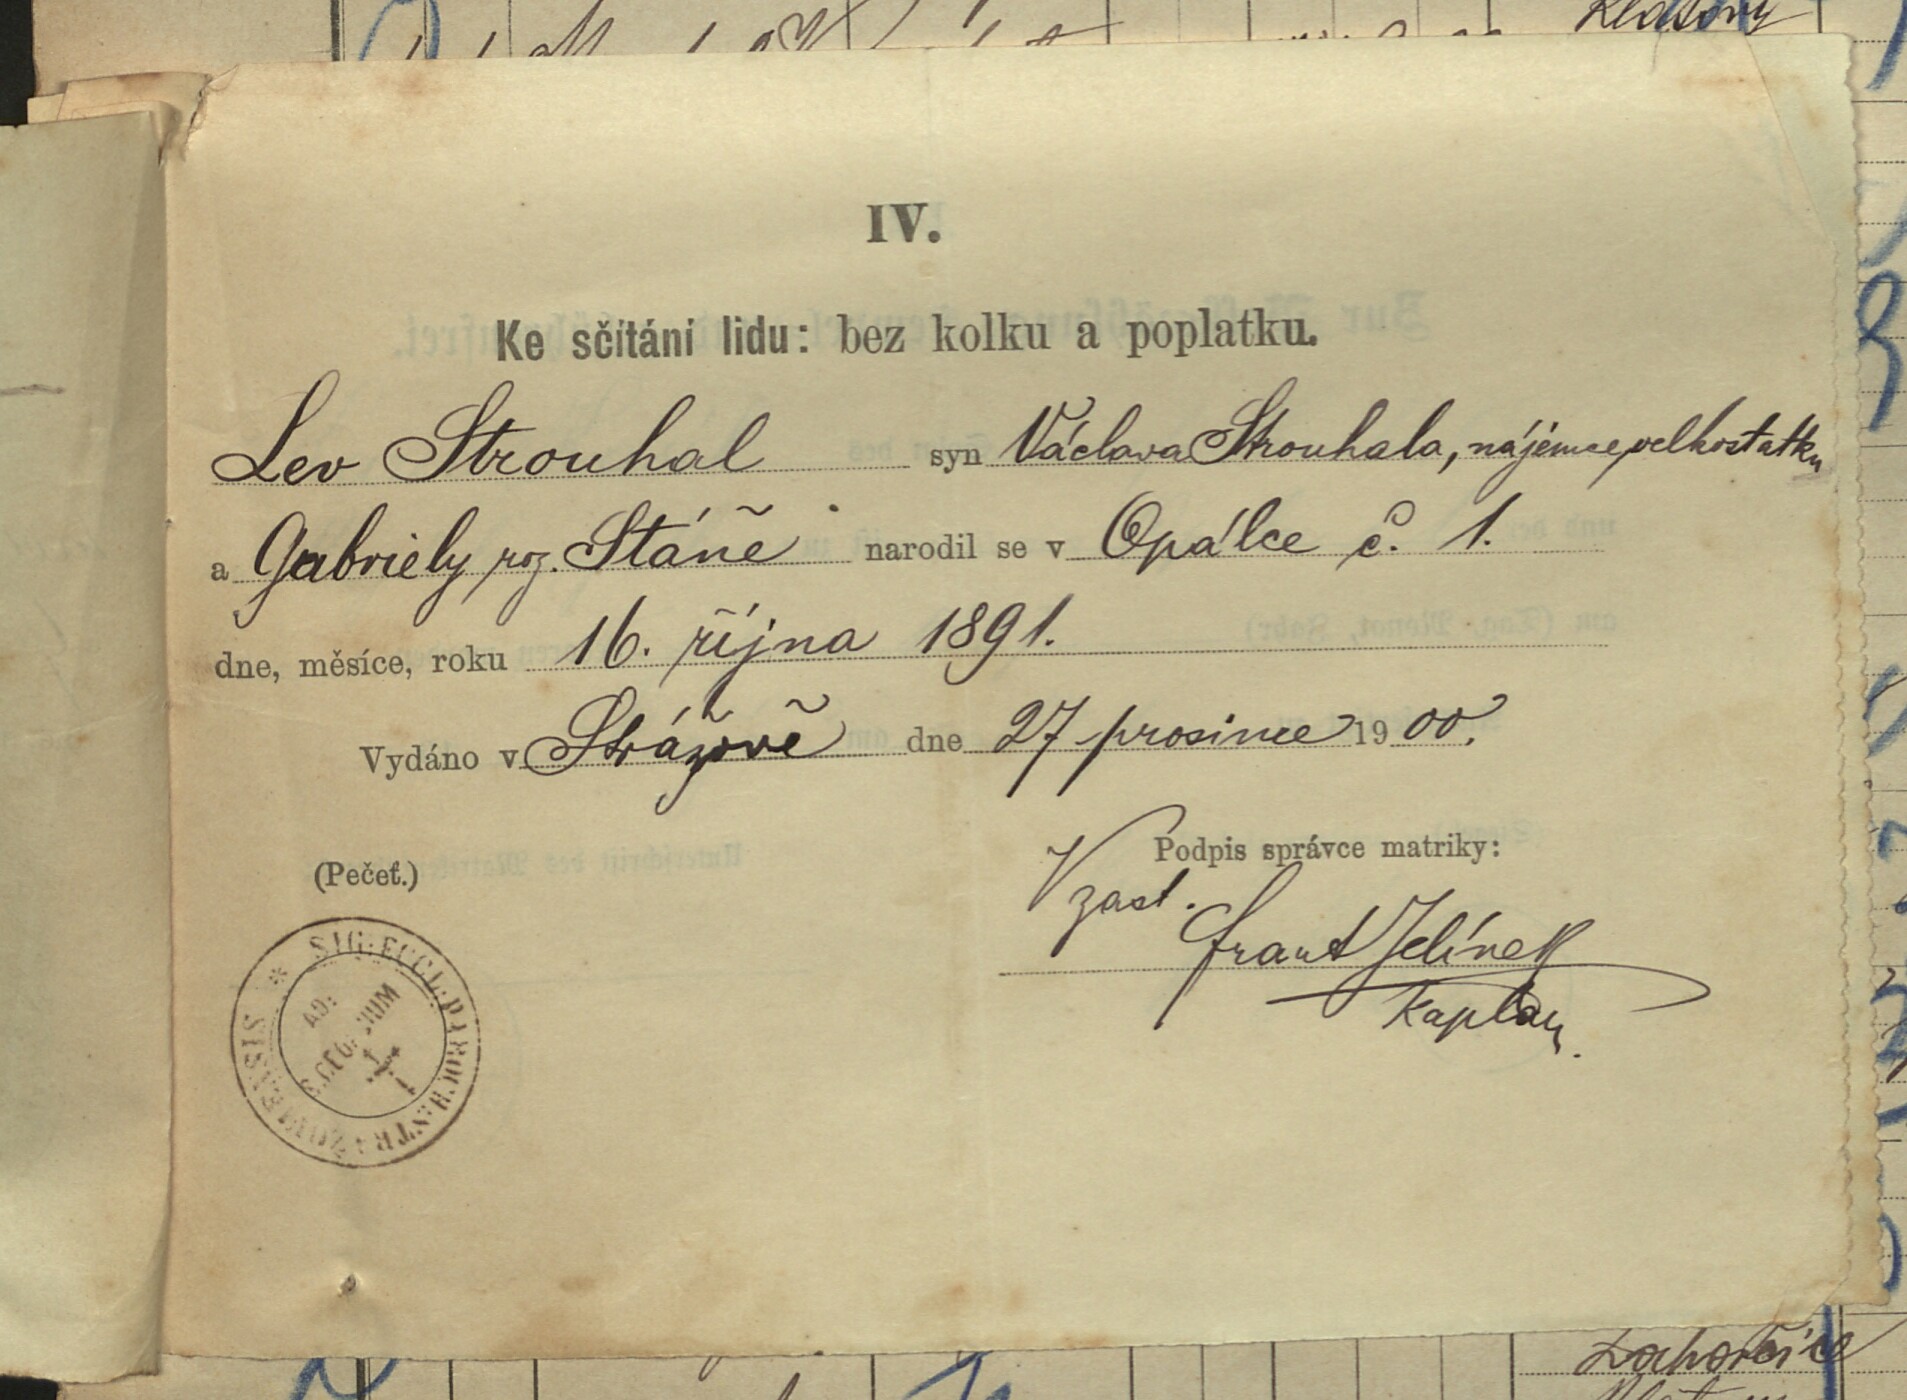 Klatovy
IV.
Ke sčítání lidu: bez kolku a poplatku.
Lev Strouhal syn Václava Strouhala, nájemce velkostatku
a Gabriely roz. Stáně narodil se v Opálce č. 1.
dne, měsíce, roku 16. října 1891.
Vydáno v Strážově dne 27 prosince 1900.
(Pečeť.)
Podpis správce matriky:
V zast.
Frant Jelínek
kaplan.
SIG. ECCL. PAROCH. STRAZOVIENSIS *
AD.
S. GEORGIUM
Zahorčice